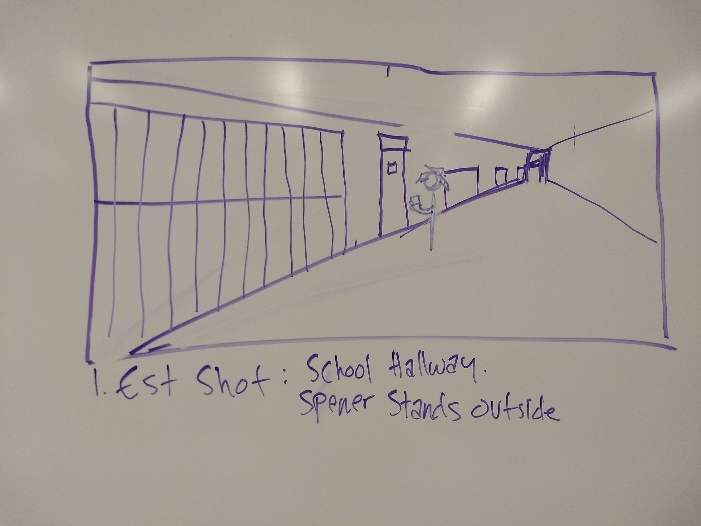 1. Est Shot: School Hallway.
Spener Stands outside